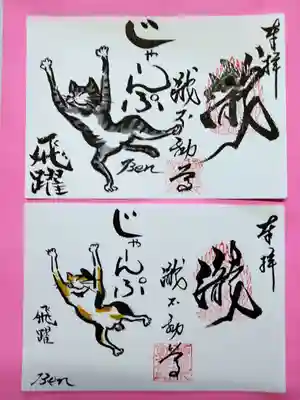 奉拝
瀧
不動尊
じゃーんぷ
Ben
飛躍
奉拝
瀧
不動尊
じゃーんぷ
飛躍
Ben